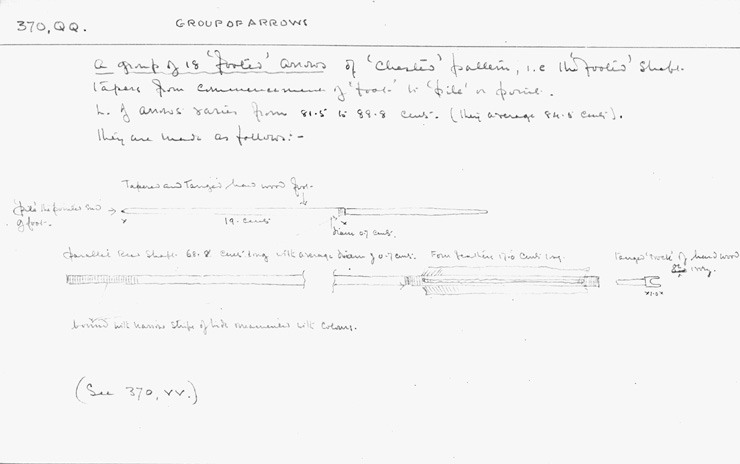 370, QQ.
GROUP OF ARROWS
A group of 18 'footed' arrows of 'Chested' pattern, i.e the 'footed' shaft
tapers from commencement of 'foot' to 'pile' or point.
L. of arrows varies from 81.5 to 89.8 cents. (They average 84.8 cents).
They are made as follows:-
Tapered and Tanged hard wood foot.
'pile' the pointed end
of foot.
19. cents.
diam 0.7 cents.
parallel shaft. 68.8 cents long with average diam of 0.7 cent.
Four feathers 17.0 cents long.
Tanged 'nock' of hard wood
long.
bound with narrow strips of ornamented with colours.
(See 370, VV.)